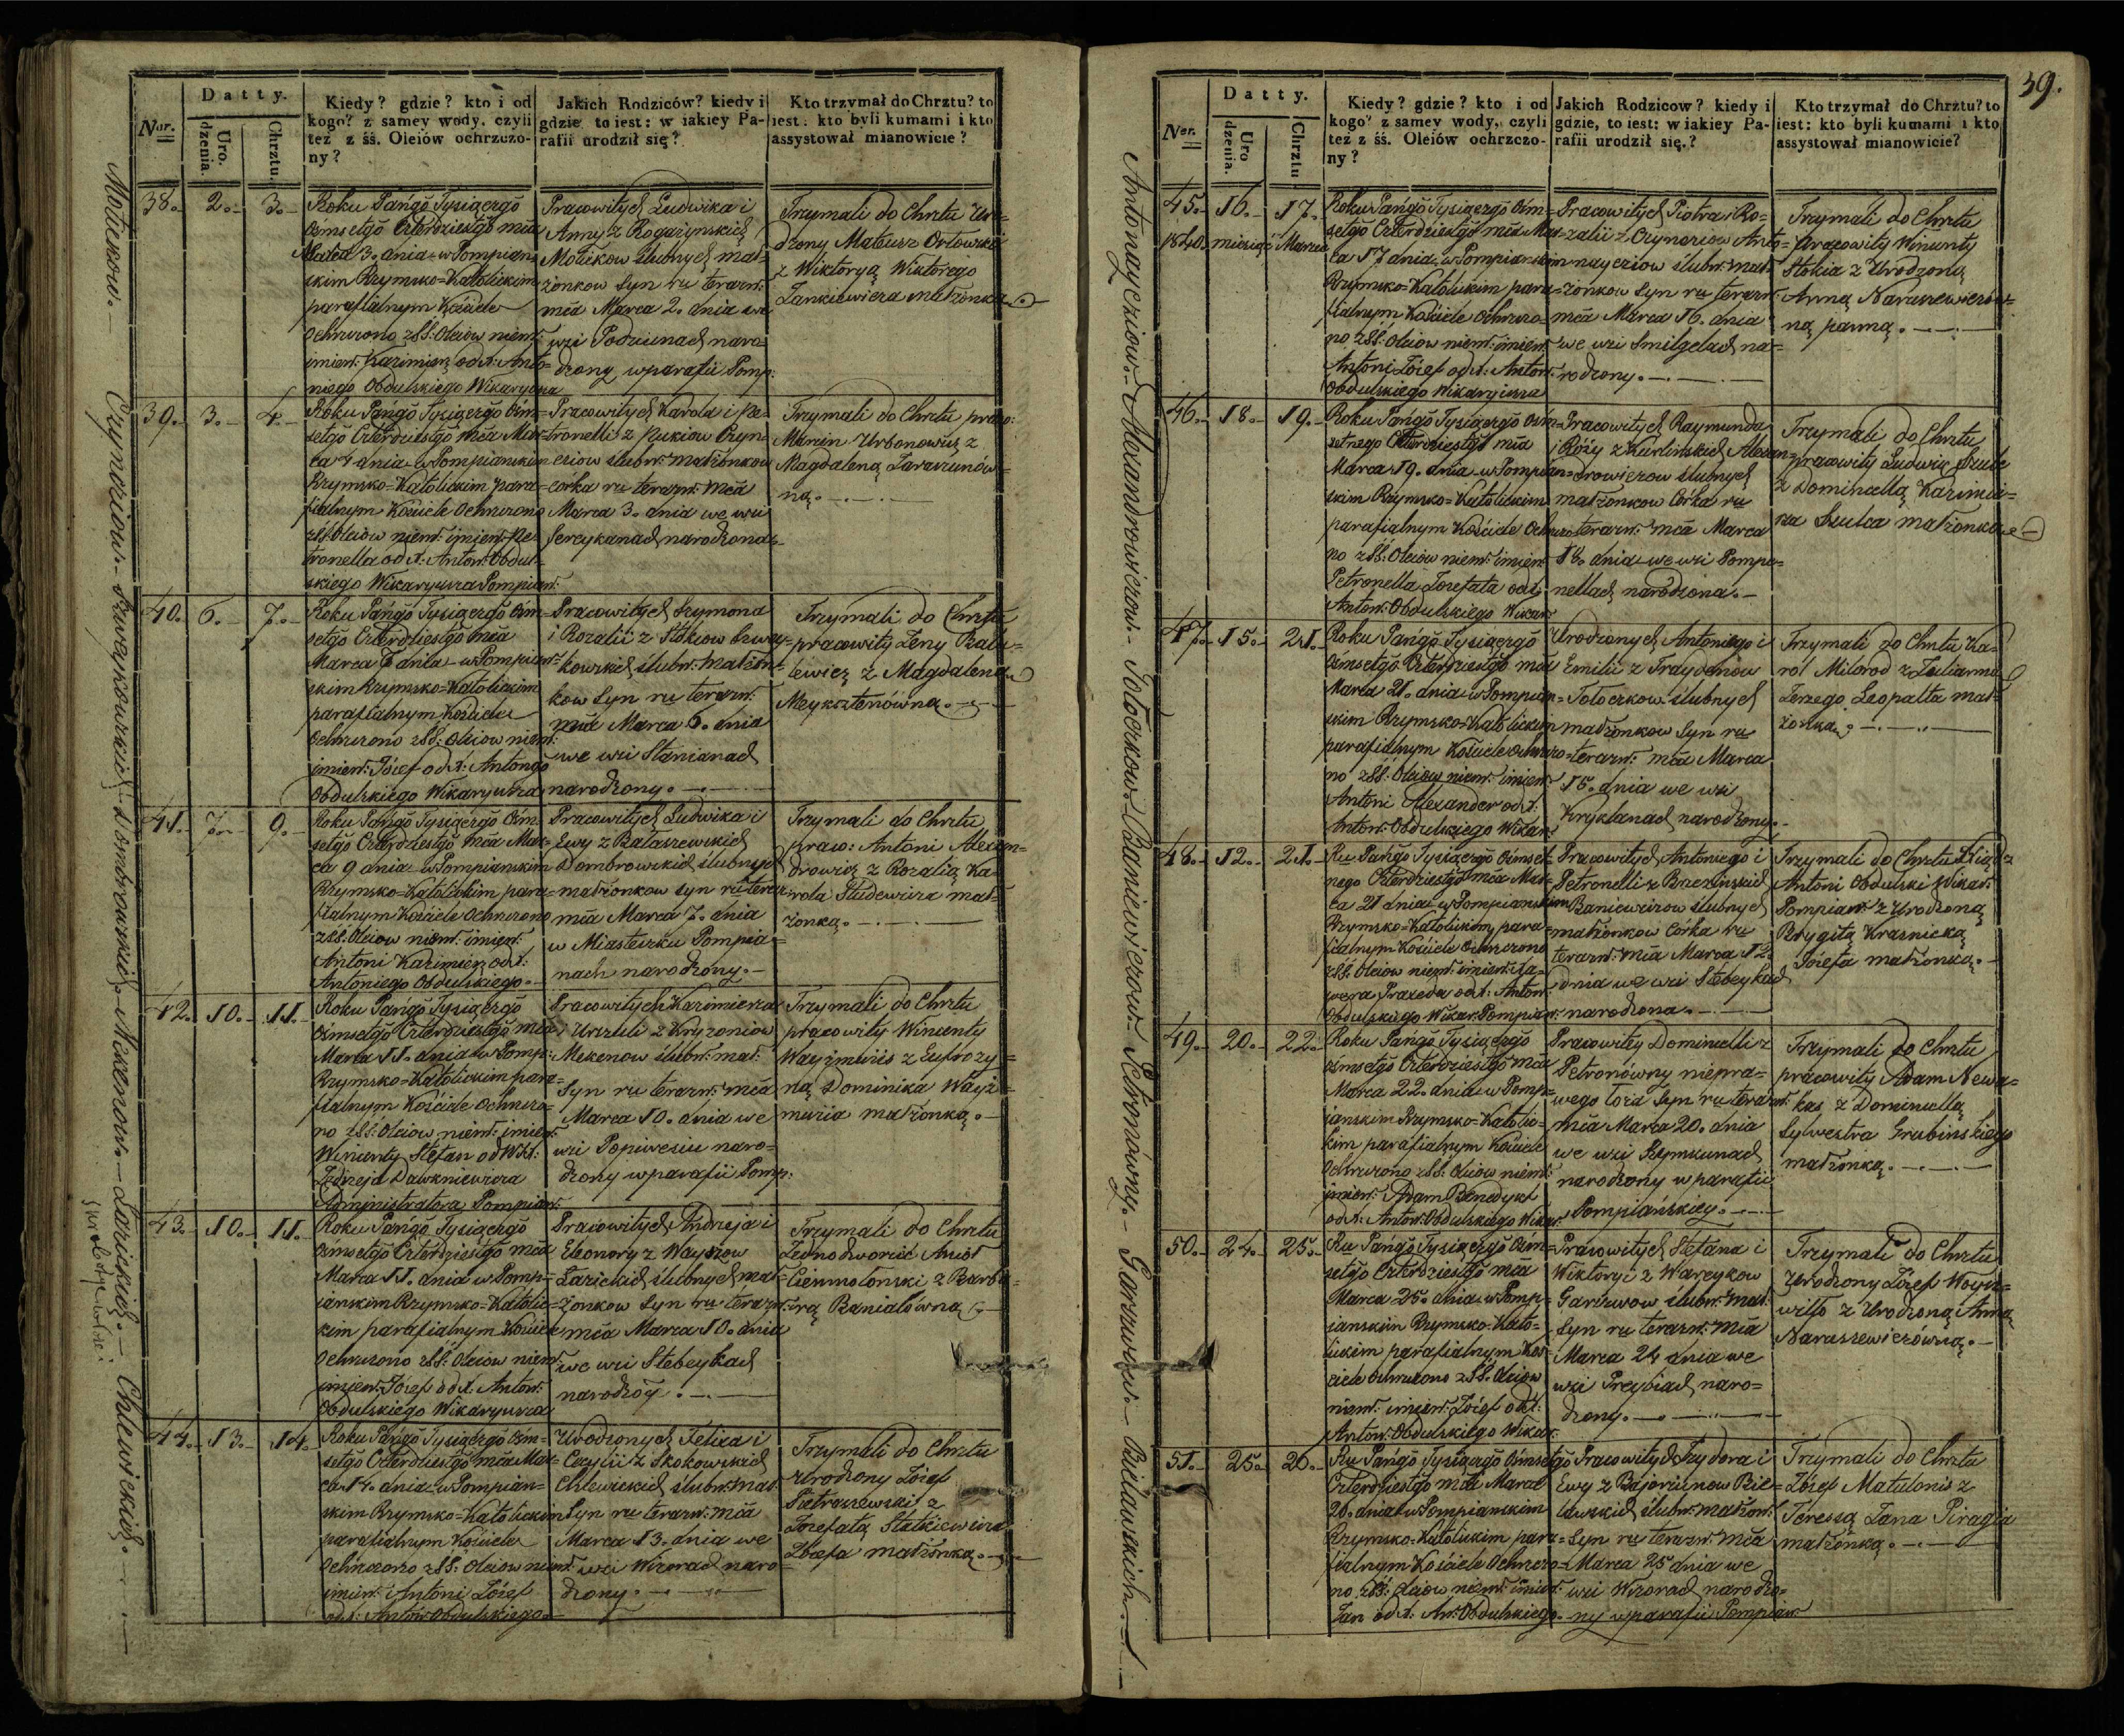 39.
Ner.
Datty.
Uro.
dzenia.
Chrztu.
Kiedy? gdzie? kto i od
kogo? z samey wody, czyli
też z śś. Oleiów ochrzczo-
ny?
Jakich Rodziców? kiedy i
gdzie to iest: w iakiey Pa-
rafii urodził się?
Kto trzymał do Chrztu? to
iest: kto byli kumami i kto
assystował mianowicie?
38. 2. 3.
Roku Pańgŏ Tysiączgŏ
Osmsetgŏ Czterdziestgŏ mča
Marca 3. dnia w Pompian-
skim Rzymsko=Katolickim
parafialnym Kościele
Ochrzczono z SS: Oleiow niem:
imien: Kazimierz od X: Anto-
niego Obdulskiego Wikaryusza
Pracowitych Ludwika i
Anny z Rogazynskich
Motiekow ślubnych mał-
żonkow Syn ru terazn:
mča Marca 2. dnia we
wsi Podziunach naro-
dzony w parafii Pomp:
Trzymali do Chrztu Uro-
dzony Mateusz Orłowski
z Wiktoryą Wiktorego
Jankiewicza małżonką
39. 3. 4.
Roku Pańgŏ Tysiączgŏ Osm-
setgŏ Czterdziestgŏ mča Mar-
ca 4 dnia w Pompianskim
Rzymsko=Katolickim para-
fialnym Kościele Ochrzczono
z SS Oleiow niem: imien: Pe-
tronella od X: Anton: Obdul-
skiego Wikaryusza Pompian:
Pracowitych Karola i Pe-
tronelli z Pukiow Czyn-
cziow ślubn: małżonkow
córka ru terazn: mča
Marca 3. dnia we wsi
Sereykanach narodzona
Trzymali do Chrztu praco:
Marcin Urbonowicz z
Magdaleną Zaraunów-
ną.
40. 6. 7.
Roku Pańgŏ Tysiączgŏ Osm-
setgŏ Czterdziestgŏ mča
Marca 7 dnia w Pompian-
skim Rzymsko=Katolickim
parafialnym Kościele
Ochrzczono z SS: Oleiow niem:
imien: Józef od X: Antongŏ
Obdulskiego Wikaryusza
Pracowitych Szymona
i Rozalii z Stokiow Szway-
kowskich ślubn: małżon-
kow Syn ru terazn:
mča Marca 6. dnia
we wsi Stanianach
narodzony.
Trzymali do Chrztu
pracowity
z Magdaleną
Meyksztenówną.
41. 7. 9.
Roku Pańgŏ Tysiączgŏ Osm-
setgŏ Czterdziestgŏ mča Mar-
ca 9 dnia w Pompianskim
Rzymsko=Katolickim para-
fialnym Kościele Ochrzczono
z SS: Oleiow niem: imien:
Antoni Kazimierz od X:
Antoniego Obdulskiego.
Pracowitych Ludwika i
Ewy z Bałaszewskich
Dombrowskich ślubnych
małżonkow syn ru teraz:
mča Marca 7. dnia
w Miasteczku Pompia-
nach narodzony.
Trzymali do Chrztu
praco: Antoni Alexan-
drowicz z Rozalią Ka-
rola Studewicza mał-
żonką.
42. 10. 11.
Roku Pańgŏ Tysiączgŏ
Osmsetgŏ Czterdziestgŏ mča
Marca 11. dnia w Pomp:
Rzymsko=Katolickim para-
fialnym Kościele Ochrzczo-
no z SS: Oleiow niem: imien:
Wincenty Stefan od WX:
Jędrzeja Dawkniewicza
Administratora Pompian:
Pracowitych Kazimierza
i Urszuli z Kryzoniow
Mekenow ślubn: mał:
Syn ru terazn: mča
Marca 10. dnia we
wsi Popiwesiu naro-
dzony w parafii Pomp:
Trzymali do Chrztu
pracowity Wincenty
Wayzmuzis z Eufrozy-
ną Dominika Wayz-
muzia małżonką.
43. 10. 11.
Roku Pańgŏ Tysiączgŏ
Osmsetgŏ Czterdziestgŏ mča
Marca 11. dnia w Pomp-
ianskim Rzymsko=Katolic-
kim parafialnym Kościele
Ochrzczono z SS: Oleiow niem:
imien: Józef od X: Anton:
Obdulskiego Wikaryusza
Pracowitych Andrzeja i
Eleonory z Wayszow
Łazickich ślubnych mał-
żonkow Syn ru terazn:
mča Marca 10. dnia
we wsi Stebeykach
narodzoy.
Trzymali do Chrztu
Jednodworiec Anioł
Ciemnołonski z Barba-
rą Banialówną
44. 13. 14.
Roku Pańgŏ Tysiączgŏ Osm-
setgŏ Czterdziestgŏ mča Mar-
ca 14. dnia w Pompian-
skim Rzymsko=Katolickim
parafialnym Kościele
Ochrzczono z SS: Oleiow niem:
imien: Antoni Józef
od X: Anton: Obdulskiego
Urodzonych Felixa i
Cecylii z Skokowskich
Chlewickich ślubn: mał:
Syn ru terazn: mča
Marca 13. dnia we
wsi Wizorach naro-
dzony.
Trzymali do Chrztu
Urodzony Józef
Pietraszewski z
Jozefatą Statkiewicza
Józefa małżonką.
Motiekow. Czyncziow. Szwaykowskich. Dombrowskich. Mekenow. Łazickich. Chlewickich.
Ner.
Datty.
Uro
dzenia.
Chrztu
Kiedy? gdzie? kto i od
kogo? z samey wody, czyli
też z śś. Oleiów ochrzczo-
ny?
Jakich Rodzicow? kiedy i
gdzie, to iest: w iakiey Pa-
rafii urodził się.?
Kto trzymał do Chrztu? to
iest: kto byli kumami i kto
assystował mianowicie?
45. 16. 17.
1840. miesiąc Marca
Roku Pańgŏ Tysiączgŏ Osm-
setgŏ Czterdziestgŏ mča Mar-
ca 17 dnia w Pompianskim
Rzymsko=Katolickim para-
fialnym Kościele Ochrzczo-
no z SS: Oleiow niem: imien:
Antoni Józef od X: Anton:
Obdulskiego Wikaryusza
Pracowitych Piotra i Ro-
zalii z Czyncziow Anto-
naycziow ślubn: mał:
żonkow Syn ru terazn:
mča Marca 16. dnia
we wsi Smilgelach na-
rodzony.
Trzymali do Chrztu
Pracowity Wincenty
Stokia z Urodzoną
Anną Naruszewiczów-
ną panną.
46. 18. 19.
Roku Pańgŏ Tysiączgŏ Osm-
setnego Czterdziestgŏ mča
Marca 19. dnia w Pompian-
skim Rzymsko=Katolickim
parafialnym Kościele Ochrzczo-
no z SS: Oleiow niem: imien:
Petronella Jozefata od X:
Anton: Obdulskiego Wikar:
Pracowitych Raymunda
i Róży z Kurlinskich Alexan-
drowiczow ślubnych
małżonkow Córka ru
terazn: mča Marca
18. dnia we wsi Pompe-
nellach narodzona.
Trzymali do Chrztu
pracowity Ludwig Szulc
z Dominellą Kazimie-
rza Szulca małżonką
47. 15. 21.
Roku Pańgŏ Tysiączgŏ
Osmsetgŏ Czterdziestgŏ mča
Marca 21. dnia w Pompian-
skim Rzymsko=Katolickim
parafialnym Kościele Ochrzczo-
no z SS: Oleiow niem: imien:
Antoni Alexander od X:
Anton: Obdulskiego Wikar:
Urodzonych Antoniego i
Emilii z Traydenow
Totoczkow ślubnych
małżonkow Syn ru
terazn: mča Marca
15. dnia we wsi
Kryklanach narodzony.
Trzymali do Chrztu Ka-
rol Milorod z Julianną
Jerzego Leopatta mał-
żonką.
48. 12. 21.
Ru Pańgŏ Tysiączgŏ Osmset-
nego Czterdziestgŏ mča Mar-
ca 21 dnia w Pompianskim
Rzymsko=Katolickim para-
fialnym Kościele Ochrzczono
z SS. Oleiow niem: imien: Xa-
wera Praxeda od X: Anton:
Obdulskiego Wikar: Pompian:
Pracowitych Antoniego i
Petronelli z Brzezinskich
Baniewiczow ślubnych
małżonkow Córka ru
terazn: mča Marca 12.
dnia we wsi Stebeykach
narodzona.
Trzymali do Chrztu Xiądz
Antoni Obdulski Wikar:
Pompian: z Urodzoną
Brygitą Krasnicką
Józefa małżonką.
49. 20. 22.
Roku Pańgŏ Tysiączgŏ
Osmsetgŏ Czterdziestgŏ mča
Marca 22. dnia w Pomp-
ianskim Rzymsko=Katolic-
kim parafialnym Kościele
Ochrzczono z SS: Oleiow niem:
imien: Adam Benedykt
od X: Anton: Obdulskiego Wikar:
Pracowitey Dominelli z
Petronówny niepra-
wego łoża Syn ru terazn:
mča Marca 20. dnia
we wsi Rymkunach
narodzony w parafii
Pompiańskiey.
Trzymali do Chrztu
pracowity Adam Newa-
kas z Dominellą
Sylwestra Grubinskiego
małżonką.
50. 24. 25.
Ru Pańgŏ Tysiączgŏ Osm-
setgŏ Czterdziestgŏ mča
Marca 25. dnia w Pomp-
ianskim Rzymsko=Kato-
lickim parafialnym Koś-
ciele Ochrzczono z SS. Oleiow
niem: imien: Józef od X:
Anton: Obdulskiego Wikar:
Pracowitych Stefana i
Wiktoryi z Wareykow
Garszwow ślubn: mał:
Syn ru terazn: mča
Marca 24 dnia we
wsi Preybiach naro-
dzony.
Trzymali do Chrztu
Urodzony Józef Woyni-
wiłło z Urodzoną Anną
Naruszewiczówną.
51. 25. 26.
Ru Pańgŏ Tysiączgŏ Osmsetgŏ
Czterdziestgŏ mča Marca
26. dnia w Pompianskim
Rzymsko=Katolickim para-
fialnym Kościele Ochrzczo-
no z SS: Oleiow niem: imien:
Jan od X: An: Obdulskiego.
Pracowitych Izydora i
Ewy z Bajoriunow Bie-
lawskich ślubn: małżon:
Syn ru terazn: mča
Marca 25 dnia we
wsi Wizorach narodzo-
ny w parafii Pompian:
Trzymali do Chrztu
Józef Matulonis z
Teressą Jana Piragia
małżonką.
Antonaycziow. Alexandrowiczow. Totoczkow. Baniewiczow. Petronówny. Garszwow. Bielawskich.